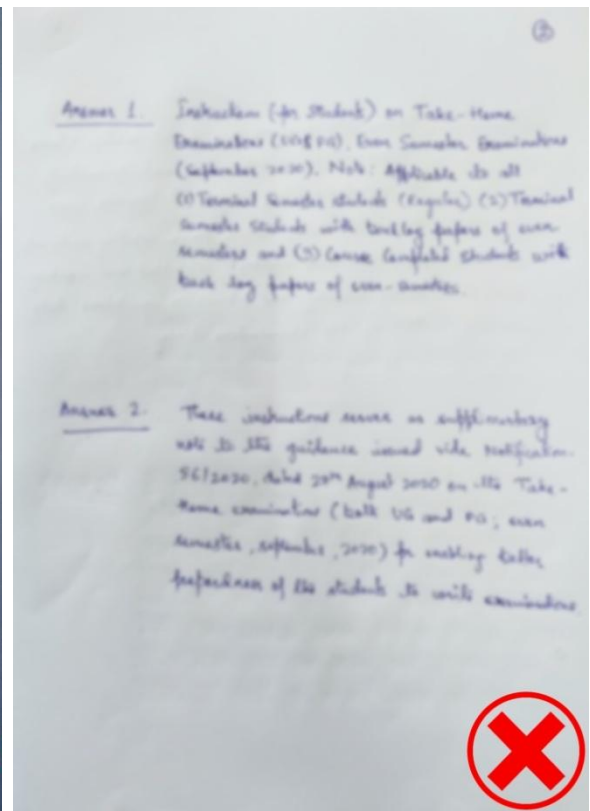 Answer 1. Instruction (for Students) on Take-Home
Examinations (UG & PG), Even Semester Examinations
(September 2020). Note: Applicable to all
(1) Terminal Semester students (Regular) (2) Terminal
Semester Students with backlog papers of even
semesters and (3) Course Completed Students with
back log papers of even-semesters.
Answer 2. These instructions serve as
note to the guidance issued vide Notification
56/2020, dated August 2020 on the Take-
Home examination (both UG and PG, even
semester, september, 2020) for enabling better
of the students to write examinations